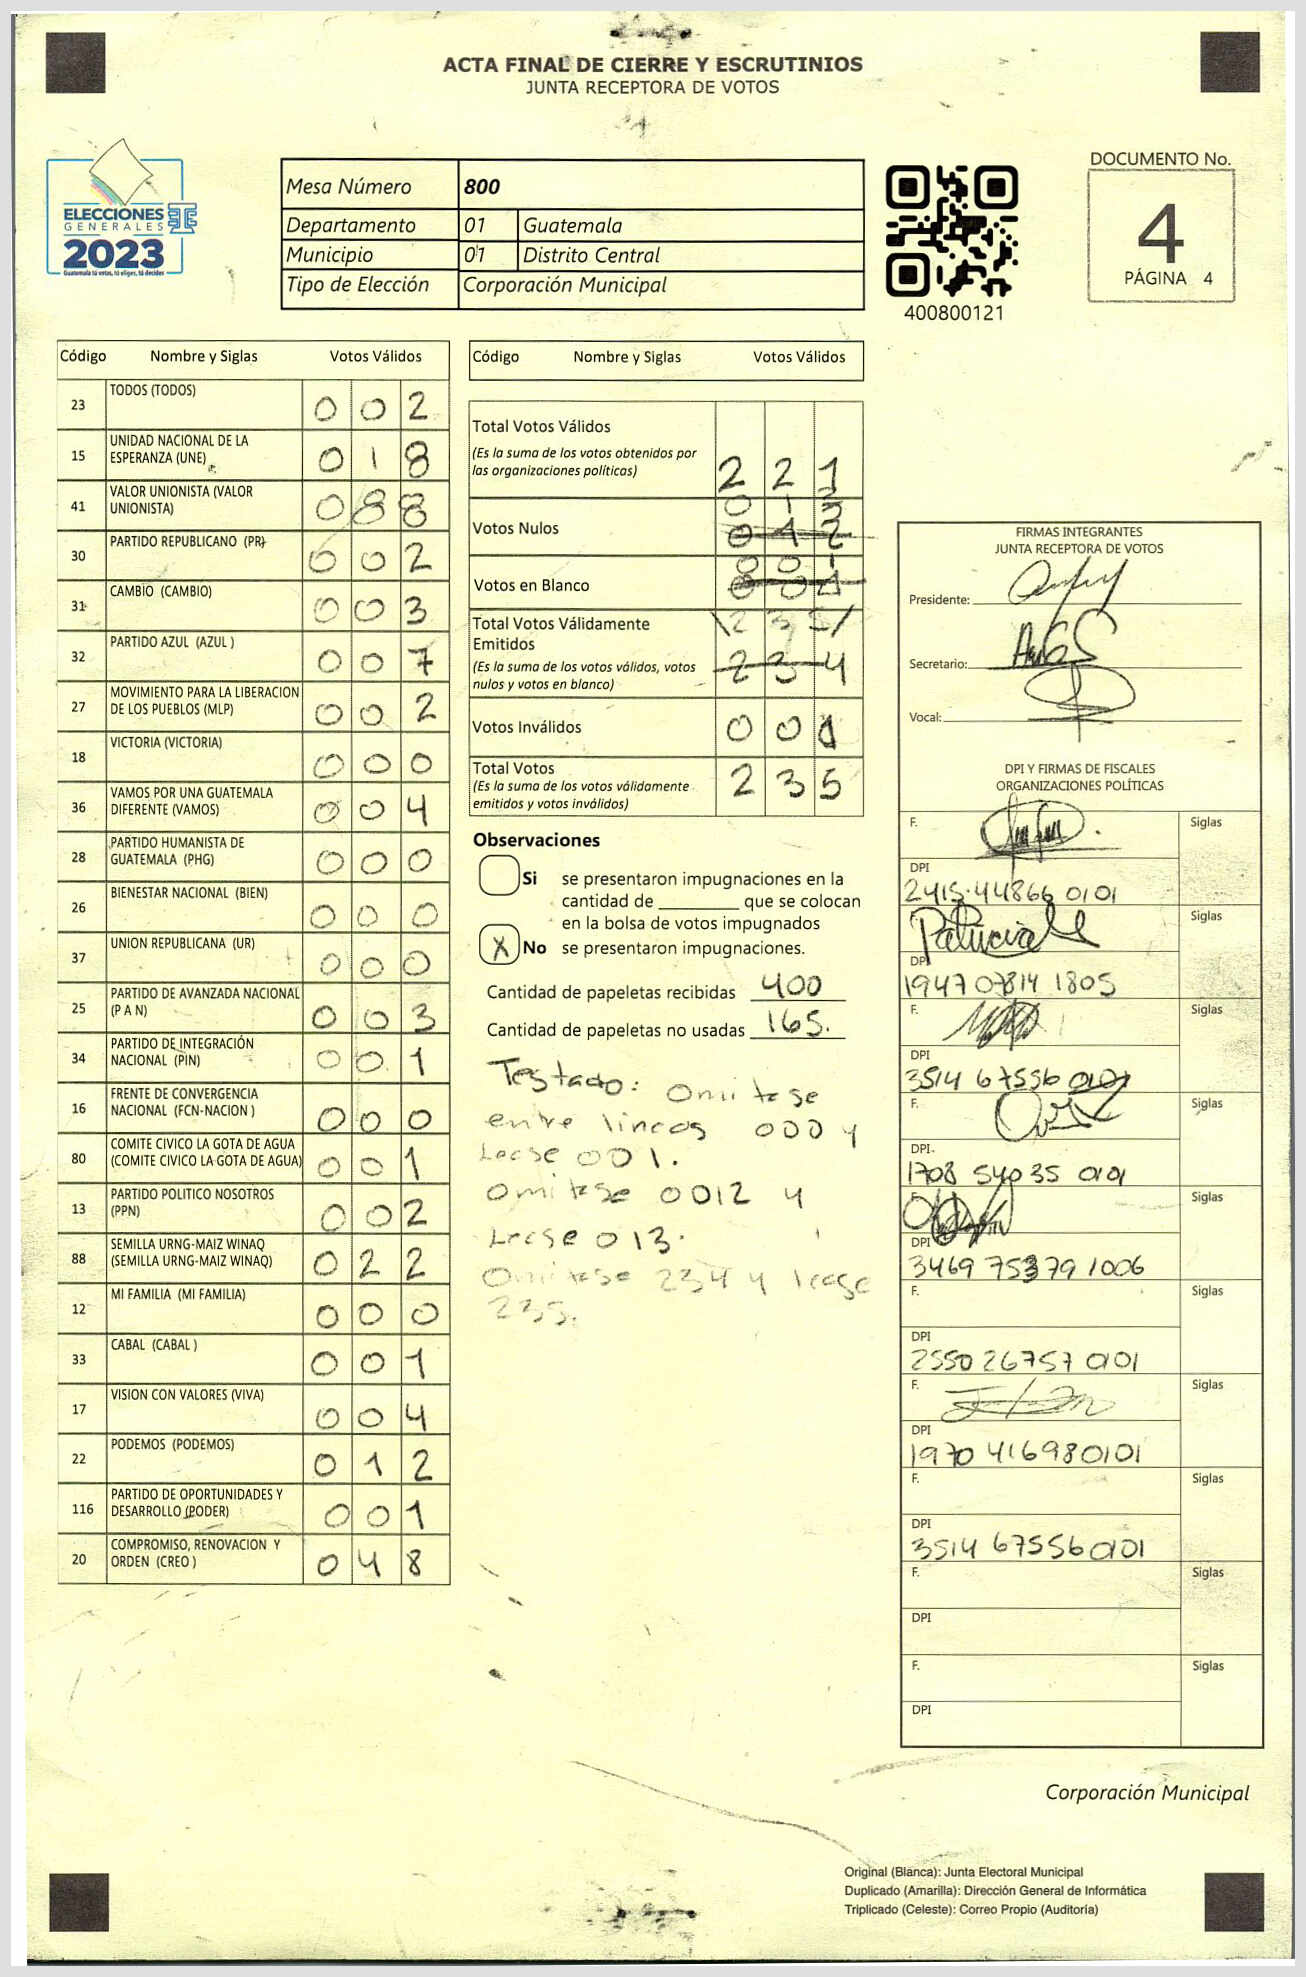 ACTA FINAL DE CIERRE Y ESCRUTINIOS
JUNTA RECEPTORA DE VOTOS
ELECCIONES
GENERALES
2023
Guatemala tú votas, tú eliges, tú decides
Mesa Número 800
Departamento 01 Guatemala
Municipio 01 Distrito Central
Tipo de Elección Corporación Municipal
400800121
DOCUMENTO No.
4
PÁGINA 4
Código Nombre y Siglas Votos Válidos
23 TODOS (TODOS) 0 0 2
15 UNIDAD NACIONAL DE LA ESPERANZA (UNE) 0 1 8
41 VALOR UNIONISTA (VALOR UNIONISTA) 0 8 8
30 PARTIDO REPUBLICANO (PR) 0 0 2
31 CAMBIO (CAMBIO) 0 0 3
32 PARTIDO AZUL (AZUL ) 0 0 7
27 MOVIMIENTO PARA LA LIBERACION DE LOS PUEBLOS (MLP) 0 0 2
18 VICTORIA (VICTORIA) 0 0 0
36 VAMOS POR UNA GUATEMALA DIFERENTE (VAMOS) 0 0 4
28 PARTIDO HUMANISTA DE GUATEMALA (PHG) 0 0 0
26 BIENESTAR NACIONAL (BIEN) 0 0 0
37 UNION REPUBLICANA (UR) 0 0 0
25 PARTIDO DE AVANZADA NACIONAL (P A N) 0 0 3
34 PARTIDO DE INTEGRACIÓN NACIONAL (PIN) 0 0 1
16 FRENTE DE CONVERGENCIA NACIONAL (FCN-NACION ) 0 0 0
80 COMITE CIVICO LA GOTA DE AGUA (COMITE CIVICO LA GOTA DE AGUA) 0 0 1
13 PARTIDO POLITICO NOSOTROS (PPN) 0 0 2
88 SEMILLA URNG-MAIZ WINAQ (SEMILLA URNG-MAIZ WINAQ) 0 2 2
12 MI FAMILIA (MI FAMILIA) 0 0 0
33 CABAL (CABAL ) 0 0 1
17 VISION CON VALORES (VIVA) 0 0 4
22 PODEMOS (PODEMOS) 0 1 2
116 PARTIDO DE OPORTUNIDADES Y DESARROLLO (PODER) 0 0 1
20 COMPROMISO, RENOVACION Y ORDEN (CREO ) 0 4 8
Código Nombre y Siglas Votos Válidos
Total Votos Válidos 2 2 1
(Es la suma de los votos obtenidos por
las organizaciones políticas)
0 1 3
Votos Nulos 0 1 2
0 0 1
Votos en Blanco 0 0
Total Votos Válidamente 2 3 5
Emitidos
(Es la suma de los votos válidos, votos 2 3 4
nulos y votos en blanco)
Votos Inválidos 0 0
Total Votos 2 3 5
(Es la suma de los votos válidamente
emitidos y votos inválidos)
Observaciones
Si se presentaron impugnaciones en la
cantidad de ________ que se colocan
en la bolsa de votos impugnados
X No se presentaron impugnaciones.
Cantidad de papeletas recibidas 400
Cantidad de papeletas no usadas 165.
Testado: Omitase
entre lineas 000 y
Lease 001.
Omitase 0012 y
Lease 013.
Omitase 234 y lease
235.
FIRMAS INTEGRANTES
JUNTA RECEPTORA DE VOTOS
Presidente:
Secretario:
Vocal:
DPI Y FIRMAS DE FISCALES
ORGANIZACIONES POLÍTICAS
F. Siglas
DPI
2415 44866 0101
Patricia Siglas
DPI
1947 07814 1805
F. Siglas
DPI
3514 67556 0101
F. Siglas
DPI
1708 54035 0101
Siglas
DPI
3469 75379 1006
F. Siglas
DPI
2550 26757 0101
F. Siglas
DPI
1970 41698 0101
F. Siglas
DPI
3514 67556 0101
F. Siglas
DPI
F. Siglas
DPI
Corporación Municipal
Original (Blanca): Junta Electoral Municipal
Duplicado (Amarilla): Dirección General de Informática
Triplicado (Celeste): Correo Propio (Auditoría)